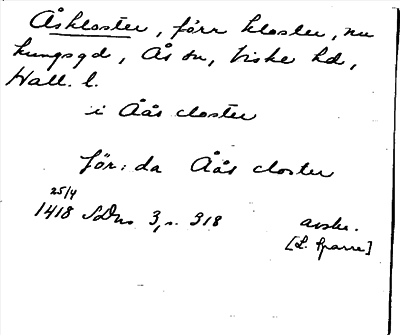 Åskloster, förr kloster, nu
kungsgd, Ås sn, Viske hd,
Hall. l.
i Äås closter
för: da Äås closter
25/4
1418 SDns 3, s. 318 avskr.
[L. Sparre]